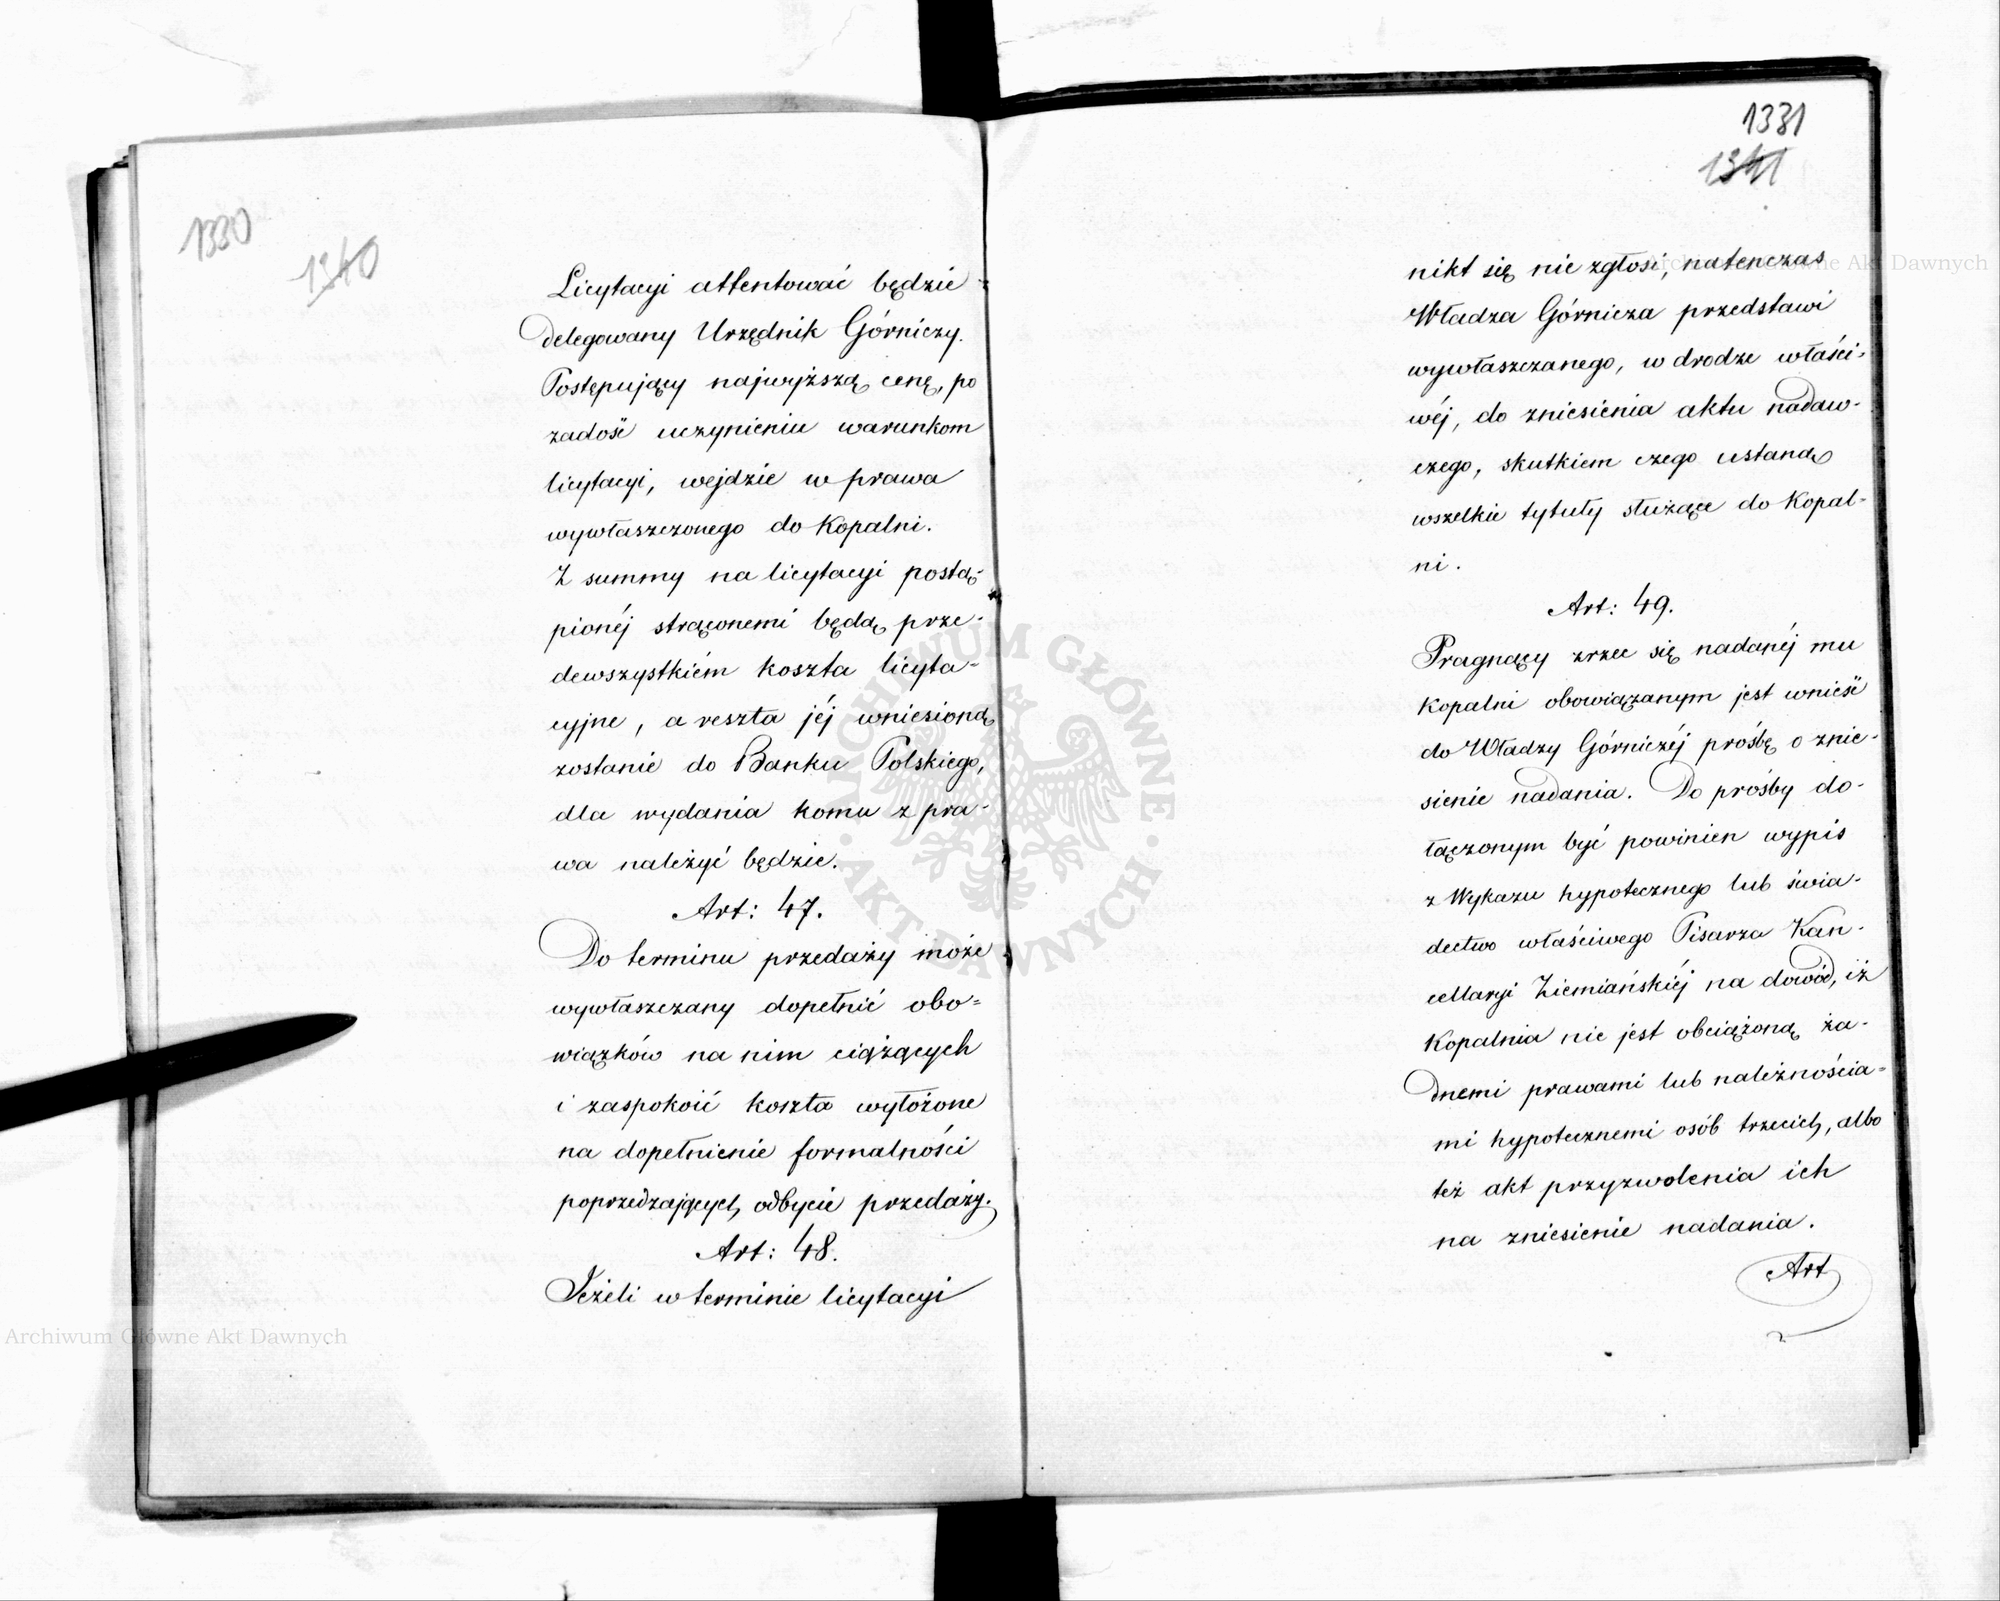 1330
1340
Licytacyi attentować będzie
delegowany Urzędnik Górniczy.
Postępujący najwyższą cenę, po
zadość uczynieniu warunkom
licytacyi, wejdzie w prawa
wywłaszczonego do Kopalni.
Z summy na licytacyi postą-
pionéj strąconemi będą prze-
dewszystkiém koszta licyta-
cyjne, a reszta jéj wniesioną
zostanie do Banku Polskiego,
dla wydania komu z pra-
wa należyć będzie.
Art: 47.
Do terminu przedaży może
wywłaszczany dopełnić obo=
wiązków na nim ciążących
i zaspokoić koszta wyłożone
na dopełnienie formalności
poprzedzających odbycie przedaży.
Art: 48.
Jeżeli w terminie licytacyi
1331
1341
nikt się nie zgłosi, natenczas
Władza Górnicza przedstawi
wywłaszczanego, w drodze właści-
wéj, do zniesienia aktu nadaw-
czego, skutkiem czego ustaną
wszelkie tytuły służące do Kopal-
ni.
Art: 49.
Pragnący zrzec się nadanéj mu
Kopalni obowiązanym jest wnieść
do Władzy Górniczéj prośbę o znie-
sienie nadania. Do prośby do-
łączonym być powinien wypis
z Wykazu hypotecznego lub świa-
dectwo właściwego Pisarza Kan-
cellaryi Ziemiańskiéj na dowód, iż
Kopalnia nie jest obciążoną ża-
dnemi prawami lub należnościa=
mi hypotecznemi osób trzecich, albo
też akt przyzwolenia ich
na zniesienie nadania.
Art
Archiwum Główne Akt Dawnych
Archiwum Główne Akt Dawnych
ARCHIWUM GŁÓWNE · AKT DAWNYCH ·